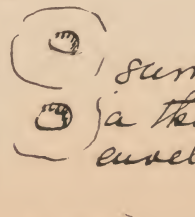 sum
a th
envel